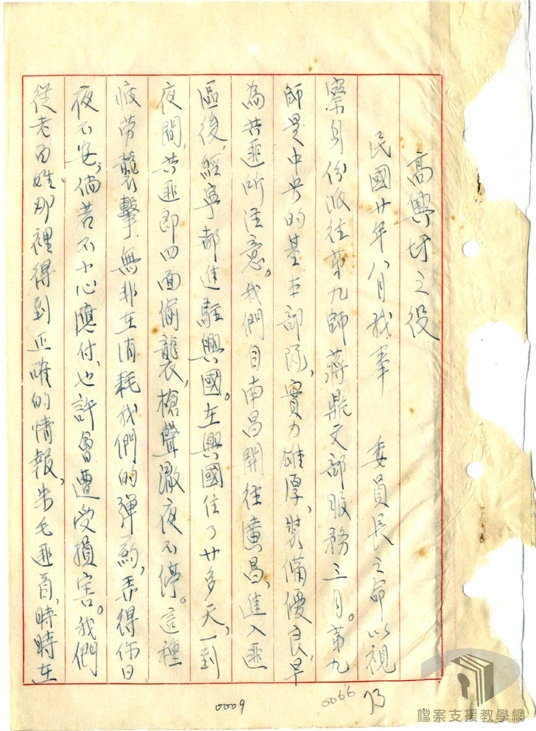 高興圩之役
民國廿年八月我奉　委員長之命以視
察身份派往第九師蔣鼎文部服務三月。第九
師是中央的基本部隊，實力雄厚，裝備優良，早
為共匪所注意。我們自南昌開往廣昌，進入匪
區後，經寧都進駐興國。在興國住了廿多天，一到
夜間，共匪即四面偷襲，槍聲澈夜不停。這種
疲勞襲擊，無非在消耗我們的彈葯，弄得你日
夜不安，倘若不小心應付，也許會遭受損害。我們
從老百姓那裡得到正確的情報，朱毛匪首，時時在
0009
0066
73
檔案支援教學網